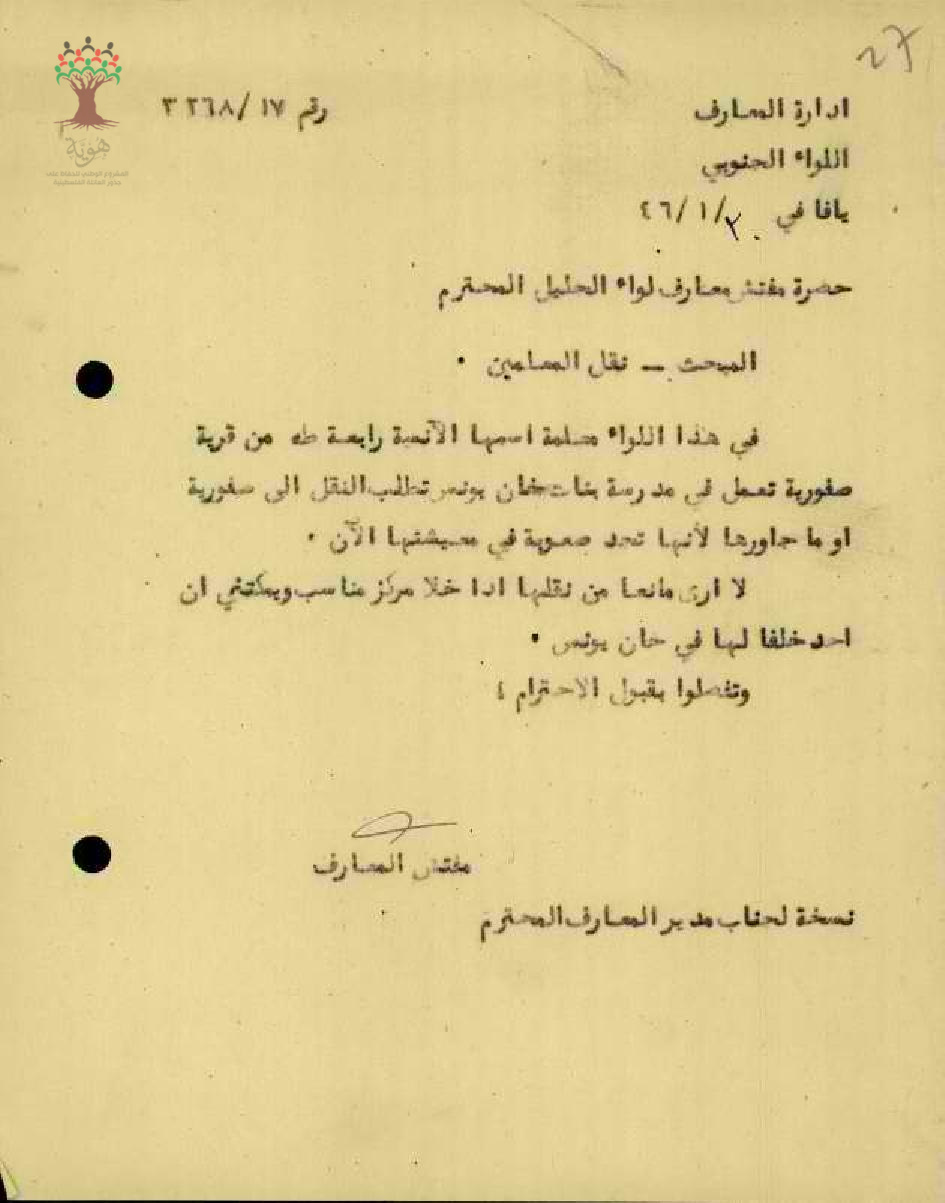 27
ادارة المعارف
رقم ١٧/ ٣٢٦٨
اللواء الجنوبي
يافا في ٣٠/ ١/ ٤٦
هوية
المشروع الوطني للحفاظ على
جذور العائلة الفلسطينية
حضرة مفتش معارف لواء الجليل المحترم
المبحث — نقل المعلمين ٠
في هذا اللواء معلمة اسمها الآنسة رابعة طه من قرية
صفورية تعمل في مدرسة بنات خان يونس تطلب النقل الى صفورية
او ما جاورها لأنها تجد صعوبة في معيشتها الآن ٠
لا ارى مانعا من نقلها اذا خلا مركز مناسب ويمكنني ان
اجد خلفا لها في خان يونس ٠
وتفضلوا بقبول الاحترام ؛
مفتش المعارف
نسخة لجناب مدير المعارف المحترم